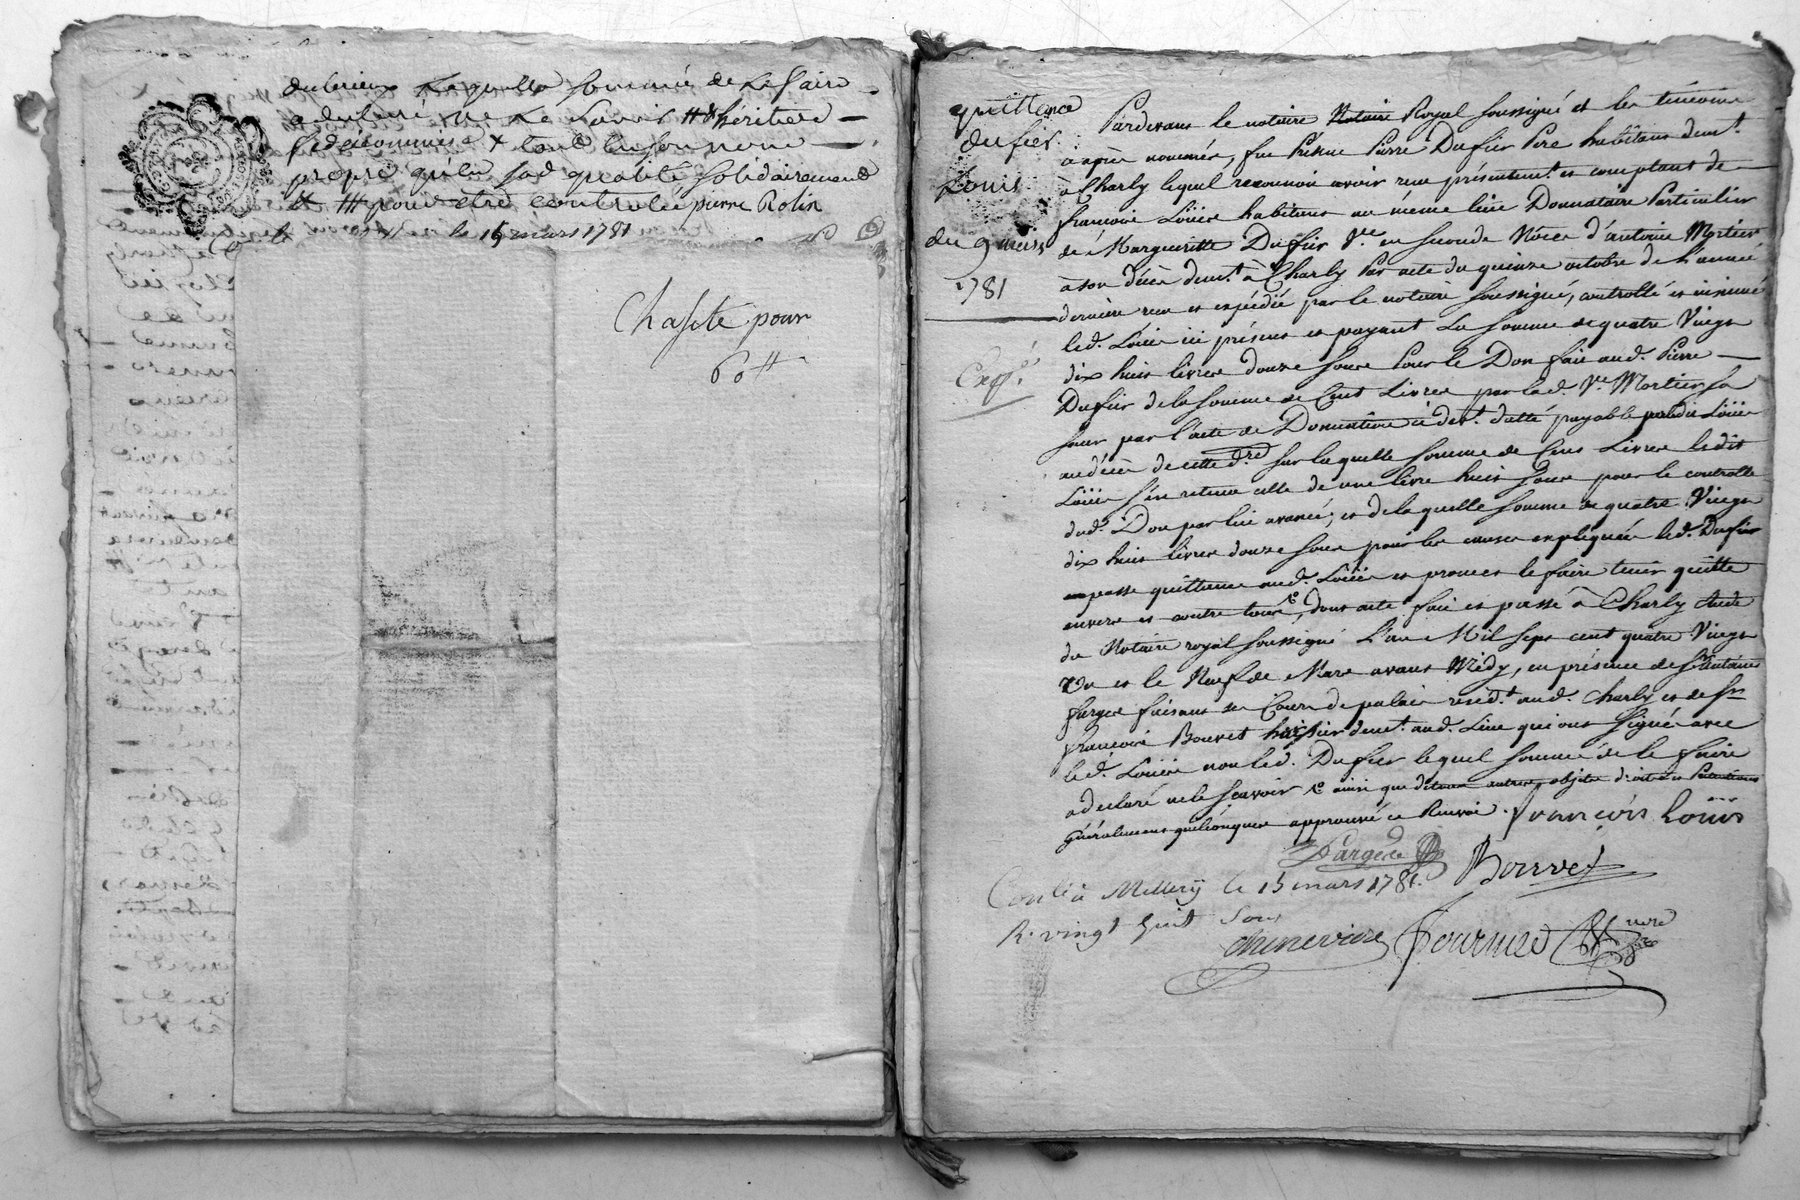 Laquelle sommé de le faire
a déclaré ne le savoir ## héritiere
fideicommise + tout en son nom
propre qu'en sad. qualité solidairement
pour etre controllé pierre Rolin
le 15 mars 1781
Chaste pour
60 ₶
quittence
dufier
Louis
du 9 mars
1781
Exp.é
Pardevant le notaire Notaire Royal soussigné et les témoins
a après nommés, fut Présent Pierre Dufier Pere habitant demt.
à Charly lequel reconnoit avoir reçu présentemt. et comptant de
françois Loüis habitant au même lieu Donnataire Particulier
de Margueritte Dufier Vve. en seconde Nôces d'antoine Mortier
à son décès demt. à Charly Par acte du quinze octobre de l'année
derniere reçu et expédiée par le notaire soussigné, controllé et insinué
led. Loüis ici présent et payant La somme de quatre Vingt
dix huit livres douze sous Pour le Don fait aud. Pierre
Dufier de la somme de Cent Livres par lad. Ve. Mortier sa
sœur par l'acte de Donnation datté payable par led. Loüis
au décès de cette dre. sur laquelle somme de Cent Livres ledit
Loüis s'en retenu celle de une livre huit sous pour le controlle
dud. Don par lui avancé, et de laquelle somme de quatre Vingt
dix huit livres douze sous pour les causes expliquées led. Dufier
passe quittance aud. Loüis et promet le faire tenir quitte
envers et contre tous, dont acte fait et passé à Charly étude
du Notaire royal soussigné L'an Mil sept cent quatre Vingt
un et le Neuf de Mars avant Midy, en présence de sr. antoine
fargere faisant ses Cours de palais residt. aud. Charly et de sr.
françois Bouvet huissier demt. aud. Lieu qui ont signé avec
led. Loüis non led. Dufier lequel sommé de le faire
a déclaré ne le sçavoir ainsi que de tous autres objets droits
généralement quelconques approuvé ce Renvoi. François Loüis
Fargere Bouvet
Conlé à Millery le 15 mars 1781.
R. vingt huit Sous
chinevriere Fournier nore